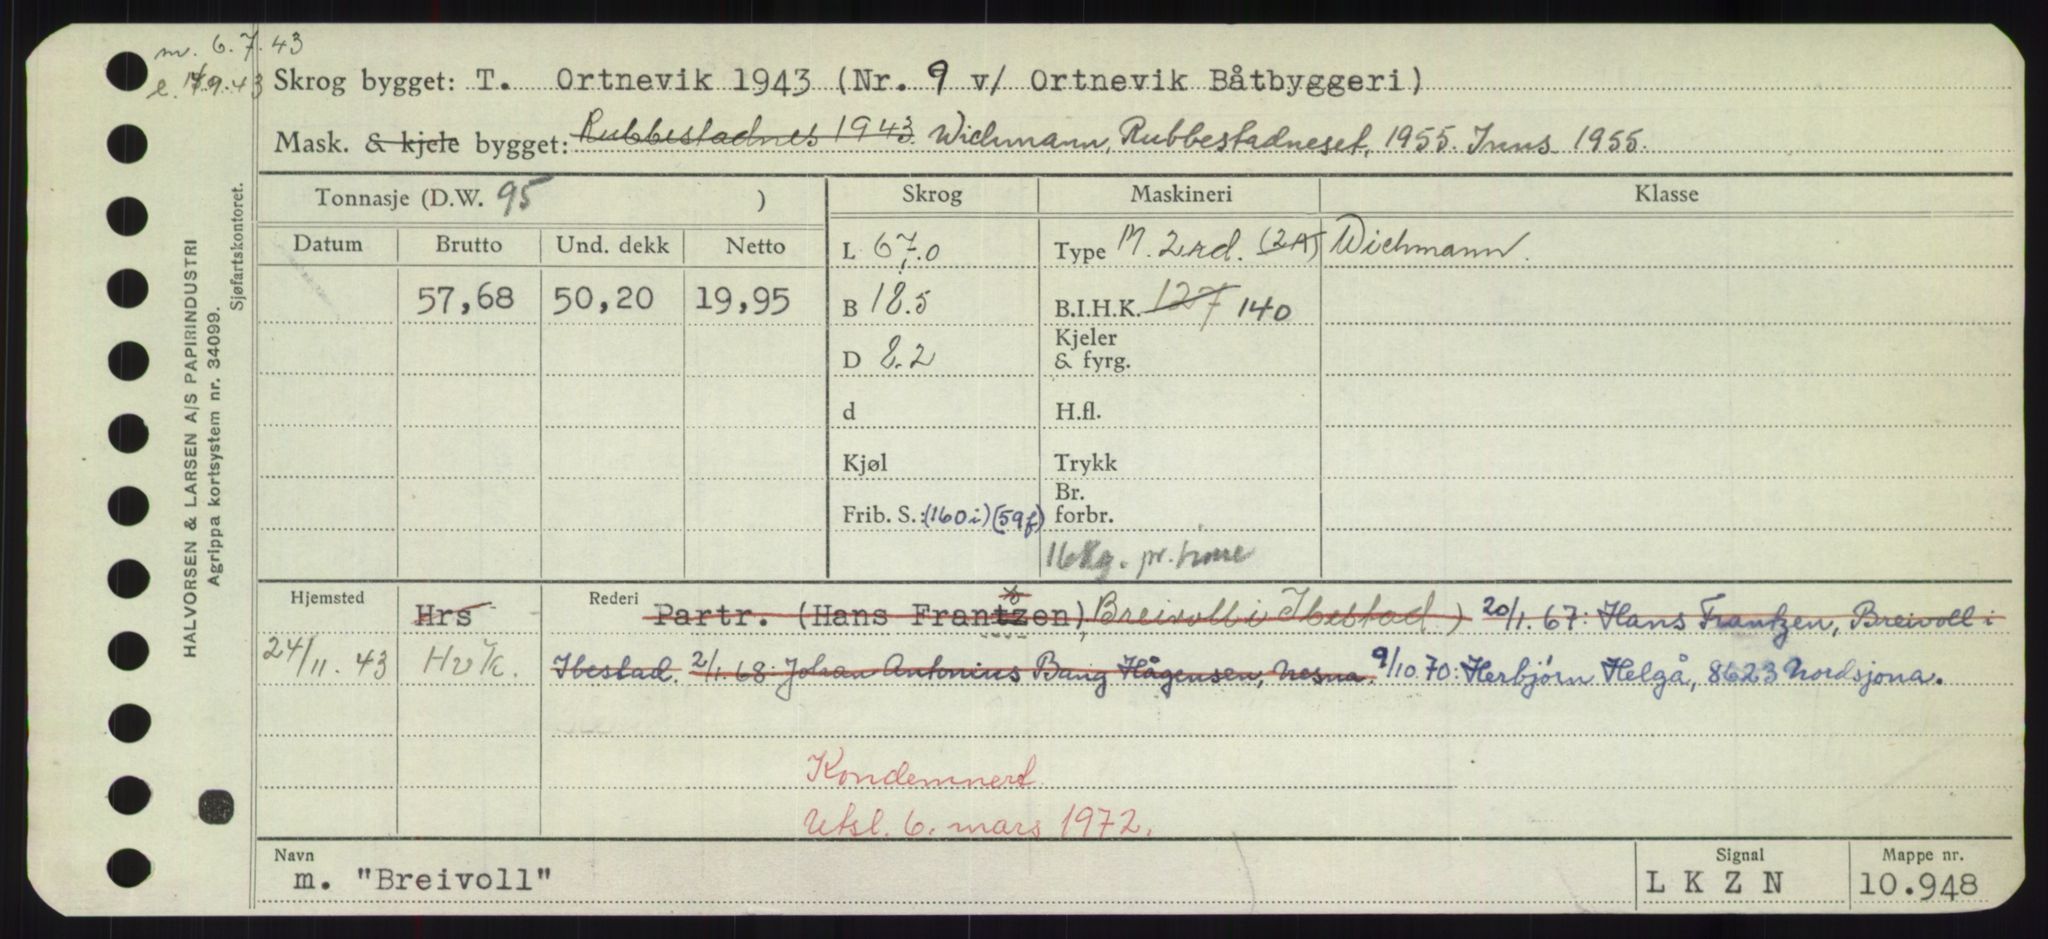 m. 6.7.43
e. 17/9.43
Skrog bygget: T. Ortnevik 1943 (Nr. 9 v/ Ortnevik Båtbyggeri)
Mask. & kjele bygget: Rubbestadnes 1943. Wichmann, Rubbestadneset, 1955. Inns. 1955.
Tonnasje (D.W. 95 ) Skrog Maskineri Klasse
Datum Brutto Und. dekk Netto L 67.0 Type M. 2.rd. (2A) Wichmann.
57,68 50,20 19,95 B 18.5 B.I.H.K. 127 140
D 8.2 Kjeler & fyrg.
d H.fl.
Kjøl Trykk
Frib. S.: (160i) (59f) Br. forbr.
16 Kg. pr. time
Hjemsted Hrs Rederi Partr. (Hans Frantzen), Breivoll i Ibestad) 20/1.67: Hans Frantzen, Breivoll i
24/11.43 HvK. Ibestad. 2/1.68: Johan Antonius Bang Hågensen, Nesna. 9/10.70: Herbjørn Helgå, 8623 Nordsjona.
Kondemnert.
Utsl. 6. mars 1972.
Navn Signal Mappe nr.
m. "Breivoll" L K Z N 10.948
HALVORSEN & LARSEN A/S PAPIRINDUSTRI
Agrippa kortsystem nr. 34099.
Sjøfartskontoret.